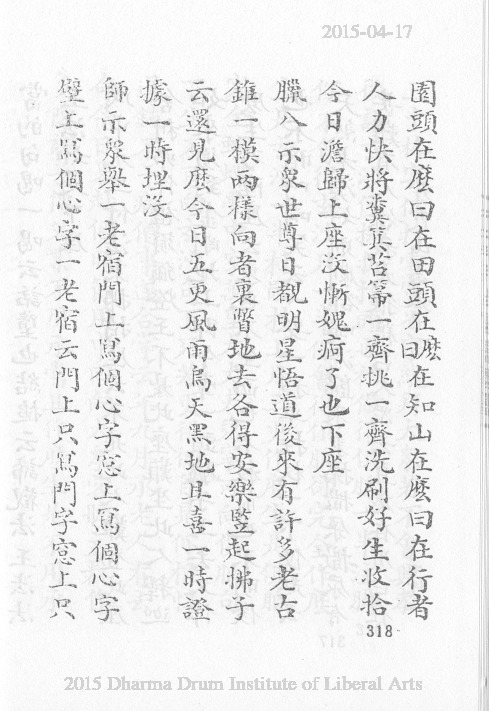 2015-04-17
園頭在麼曰在田頭在麼曰在知山在麼曰在行者
人力快將糞箕苕箒一齊挑一齊洗刷好生收拾
今日澹歸上座沒慚媿痾了也下座
臘八示眾世尊日覩明星悟道後來有許多老古
錐一模兩樣向者裏瞥地去各得安樂豎起拂子
云還見麼今日五更風雨烏天黑地且喜一時證
據一時埋沒
師示眾舉一老宿門上寫個心字窓上寫個心字
壁上寫個心字一老宿云門上只寫門字窓上只
318
2015 Dharma Drum Institute of Liberal Arts